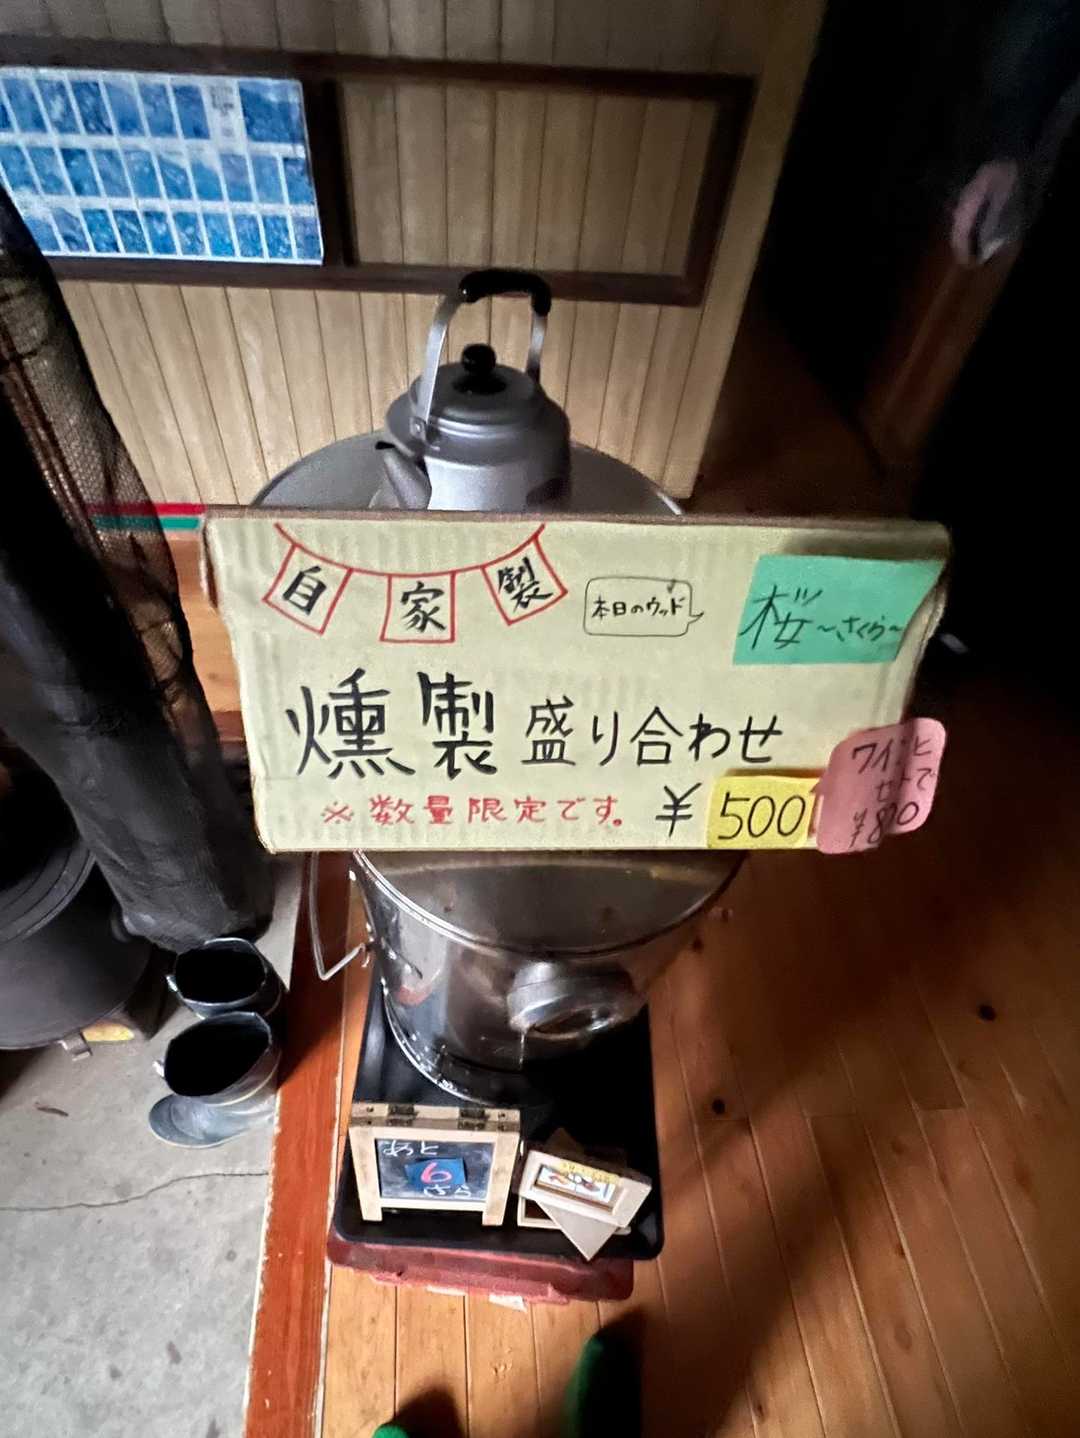 自家製
本日のウッド
桜～さくら～
燻製盛り合わせ
※数量限定です。
¥500
ワインと
セットで
¥800
あと
6
さら